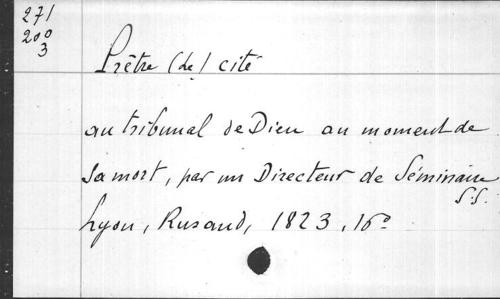 271
200
3
Prêtre (le) cité
au tribunal de Dieu au moment de
sa mort, par un Directeur de Séminaire
S.S.
Lyon, Rusand, 1823, 16°